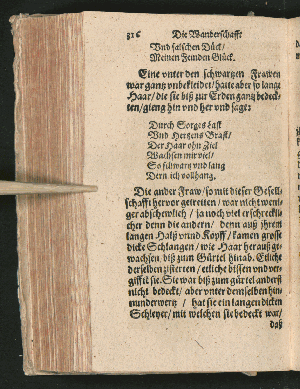 316 Die Wanderschafft
Vnd falschen Dück/
Meinen Feinden Glück.
Eine vnter den schwartzen Frawen
war gantz vnbekleidet/ hatte aber so lange
Haar/ die sie biß zur Erden gantz bedeck-
ten/ gieng hin vnd her vnd sagt:
Durch Sorges last
Vnd Hertzens Brast/
Der Haar ohn Ziel
Wachsen mir viel/
So schwartz vnd lang
Dern ich vollhang.
Die ander Fraw/ so mit dieser Gesell-
schafft hervor getretten/ war nicht weni-
ger abschewlich/ ja noch viel erschreckli-
cher denn die andern/ denn auß jhrem
langen Halß vnnd Kopff/ kamen grosse
dicke Schlangen/ wie Haar herauß ge-
wachsen/ biß zum Gürtel hinab. Etliche
derselben zisterten/ etliche bissen vnd ver-
gifft sie. Sie war biß zum gürtel anderst
nicht bedeckt/ aber vnter demselben hin-
hat sie ein langen dicken
Schleyer/ mit welchen sie bedeckt war/
daß